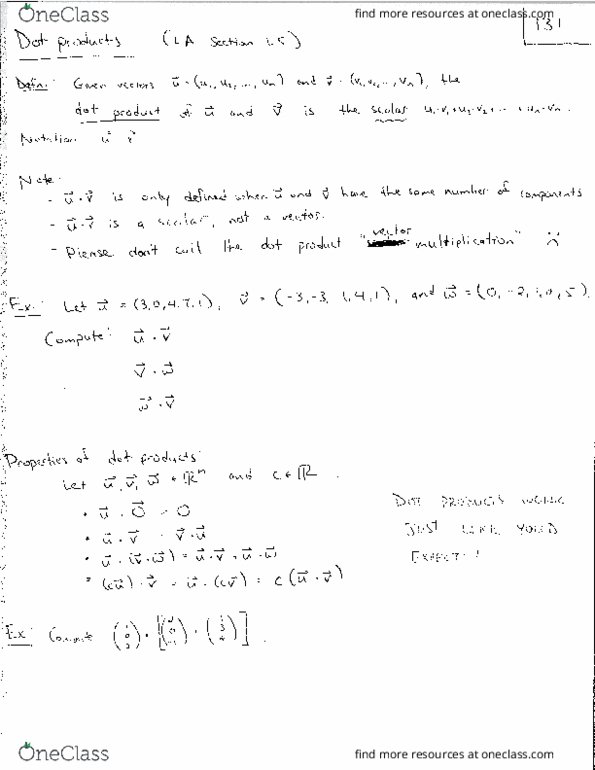 OneClass
find more resources at oneclass.com
131
Dot products (LA Section 1.5)
Defn: Given vectors u⃗ = (u₁, u₂, ..., uₙ) and v⃗ = (v₁, v₂, ..., vₙ), the
dot product of u⃗ and v⃗ is the scalar u₁·v₁+u₂·v₂+...+uₙ·vₙ.
Notation u⃗ · v⃗
Note:
- u⃗·v⃗ is only defined when u⃗ and v⃗ have the same number of components
- u⃗·v⃗ is a scalar, not a vector.
- Please don't call the dot product "vector multiplication" ☹
Ex: Let u⃗ = (3,0,4,7,1), v⃗ = (-3,-3,1,4,1), and w⃗ = (0,-2,1,0,5).
Compute: u⃗ · v⃗
v⃗ · w⃗
w⃗ · v⃗
Properties of dot products:
Let u⃗, v⃗, w⃗ ∈ ℝⁿ and c ∈ ℝ.
• u⃗ · 0⃗ = 0
• u⃗ · v⃗ = v⃗ · u⃗
• u⃗ · (v⃗ + w⃗) = u⃗ · v⃗ + u⃗ · w⃗
• (cu⃗) · v⃗ = u⃗ · (cv⃗) = c(u⃗ · v⃗)
DOT PRODUCTS WORK
JUST LIKE YOU'D
EXPECT!
Ex: Compute
OneClass
find more resources at oneclass.com